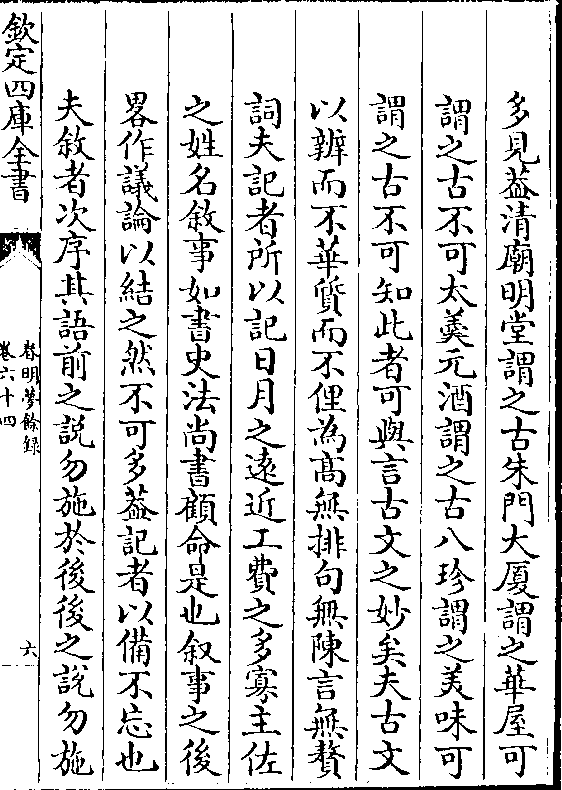 多見葢清廟明堂謂之古朱門大厦謂之華屋可
謂之古不可太羮元酒謂之古八珍謂之美味可
謂之古不可知此者可與言古文之妙矣夫古文
以辦而不華質而不俚為髙無排句無陳言無贅
詞夫記者所以記日月之遠近工費之多寡主佐
之姓名敘事如書史法尚書顧命是也叙事之後
畧作議論以結之然不可多葢記者以備不忘也
夫敘者次序其語前之説勿施於後後之説勿施
欽定四庫全書
春明夢餘録
卷六十四
六